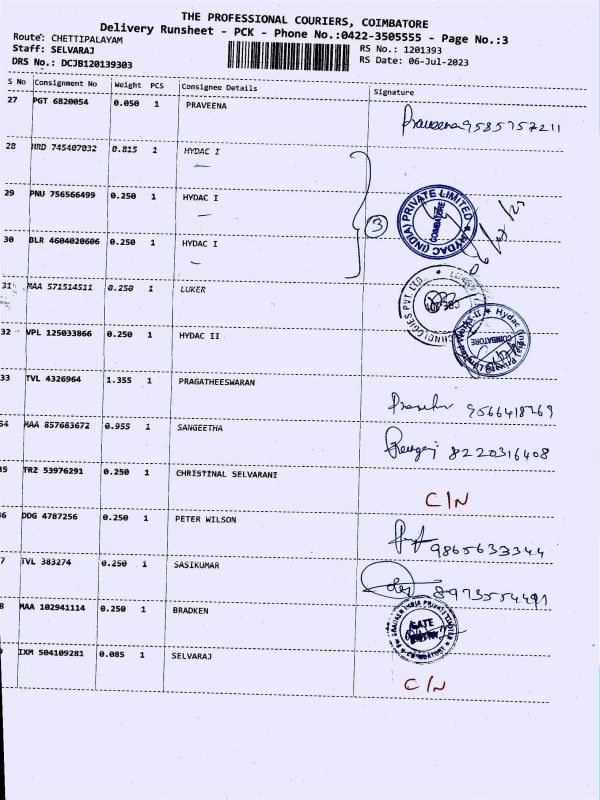 THE PROFESSIONAL COURIERS, COIMBATORE
Delivery Runsheet - PCK - Phone No.:0422-3505555 - Page No.:3
Route: CHETTIPALAYAM
Staff: SELVARAJ RS No.: 1201393
DRS No.: DCJB120139303 RS Date: 06-Jul-2023
S No Consignment No Weight PCS Consignee Details Signature
27 PGT 6820054 0.050 1 PRAVEENA Praveena 9585757211
28 HRD 745407032 0.815 1 HYDAC I
29 PNU 756566499 0.250 1 HYDAC I
3
HYDAC (INDIA) PRIVATE LIMITED
COIMBATORE
30 BLR 4604020606 0.250 1 HYDAC I
31 MAA 571514511 0.250 1 LUKER
32 VPL 125033866 0.250 1 HYDAC II
COIMBATORE
33 TVL 4326964 1.355 1 PRAGATHEESWARAN 9566418769
34 MAA 857683672 0.955 1 SANGEETHA 8220316408
35 TRZ 53976291 0.250 1 CHRISTINAL SELVARANI C/N
6 DDG 4787256 0.250 1 PETER WILSON 9865633344
7 TVL 383274 0.250 1 SASIKUMAR 8973554491
8 MAA 102941114 0.250 1 BRADKEN
BRADKEN INDIA PRIVATE LIMITED
GATE
COIMBATORE
9 IXM 504109281 0.085 1 SELVARAJ C/N